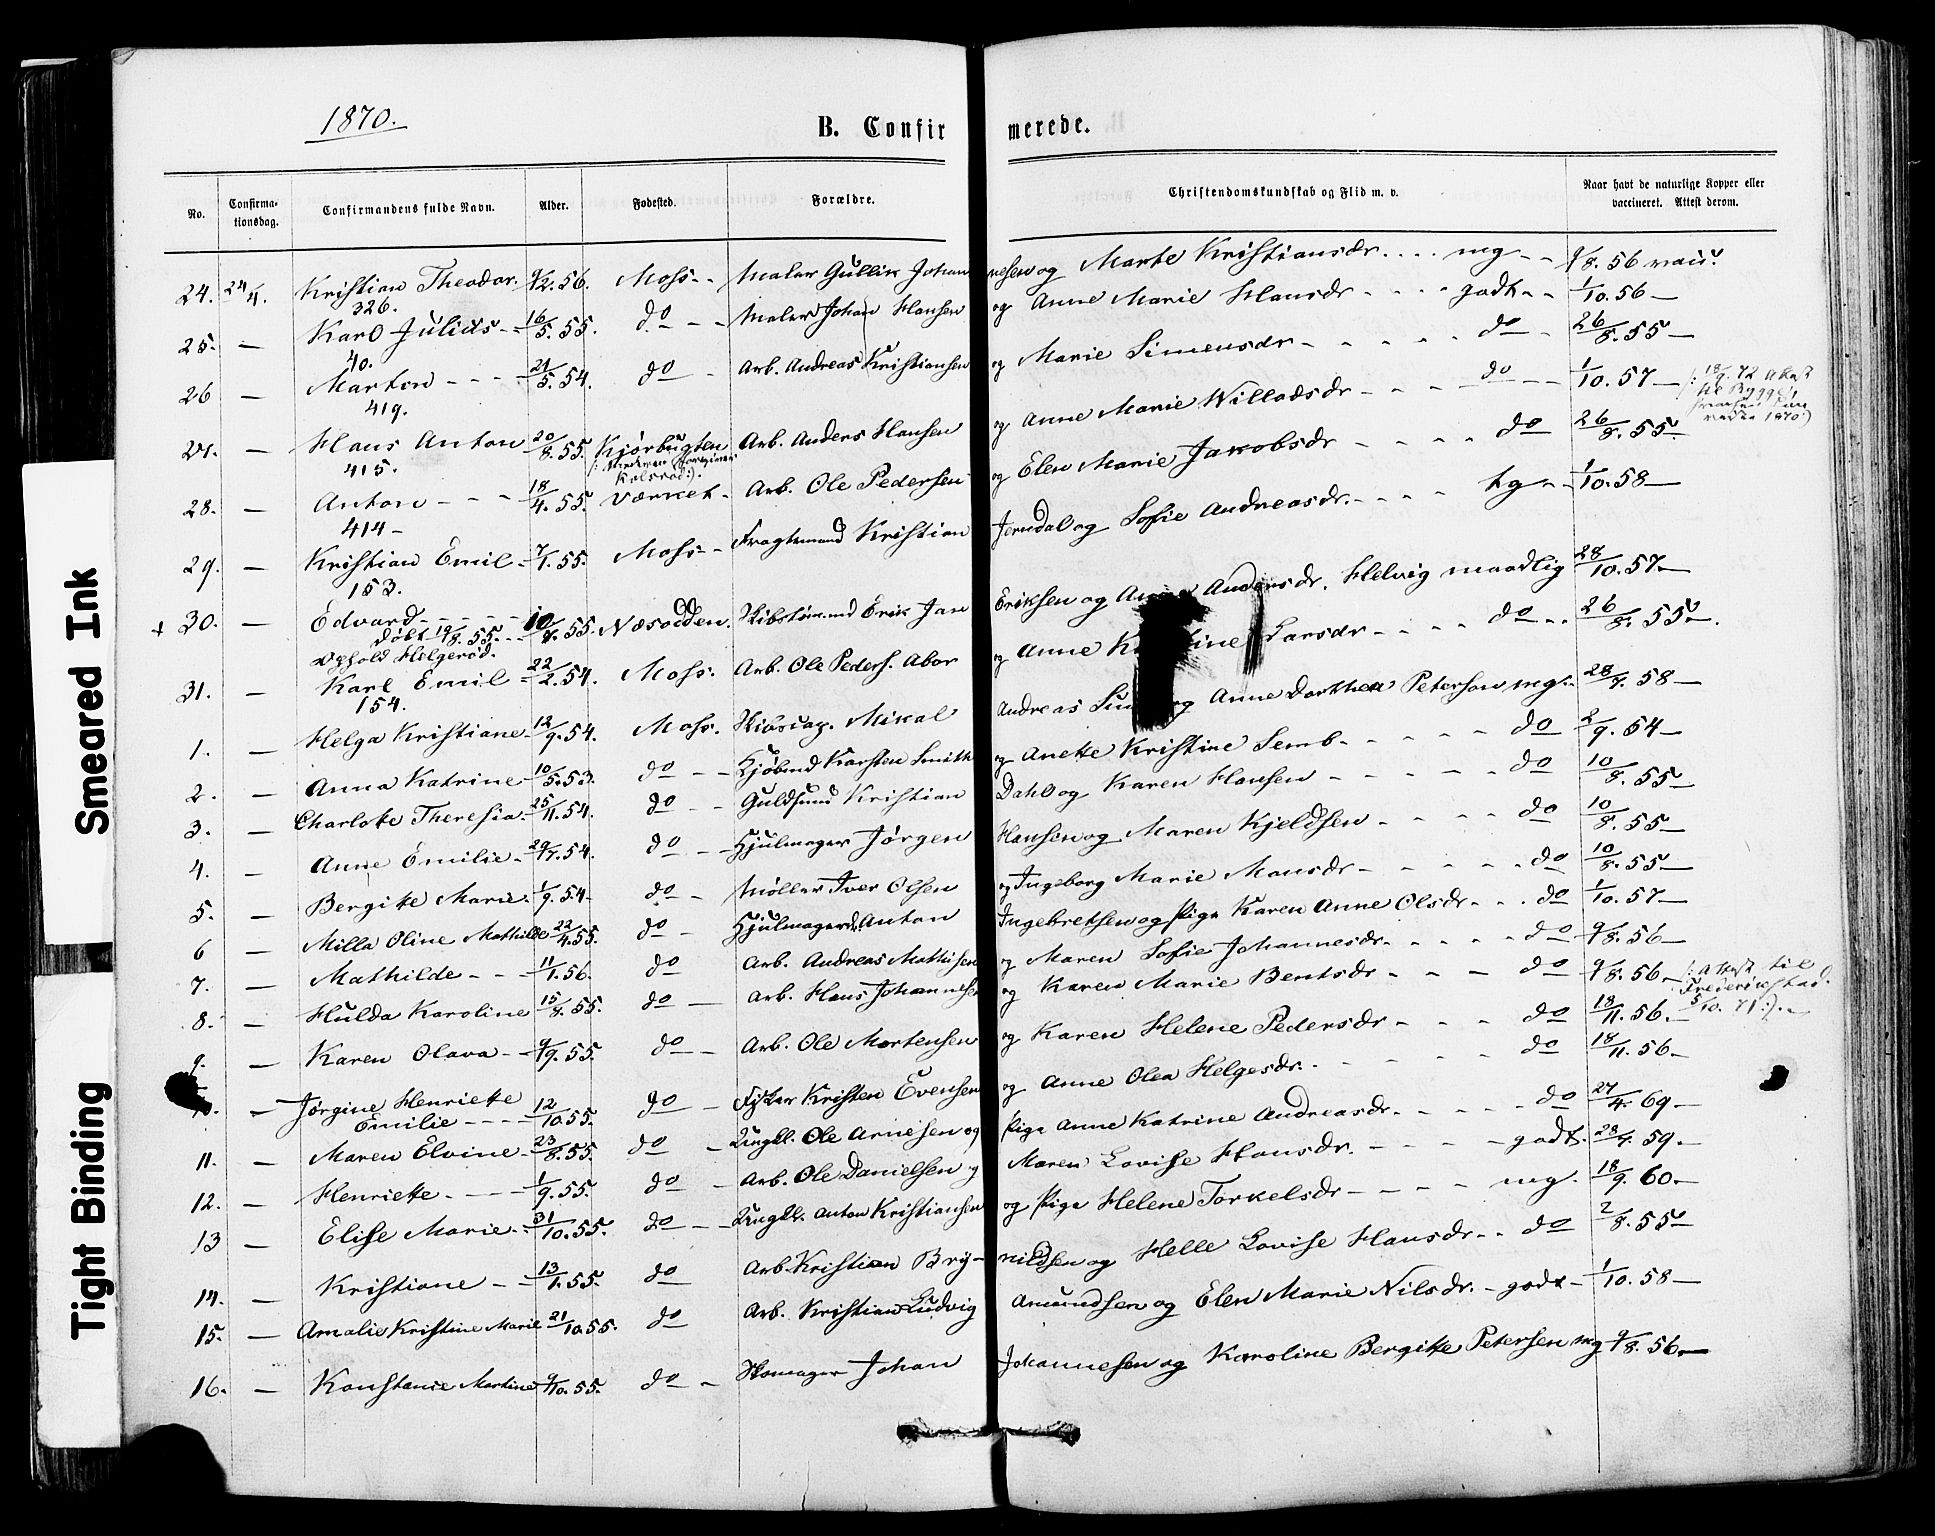 1870.
B. Confirmerede.
No. Confirmationsdag. Confirmandens fulde Navn. Alder. Fødested. Forældre. Christendomskundskab og Flid m. v. Naar havt de naturlige Kopper eller vaccineret. Attest derom.
24. 24/4. Kristian Theodor. 9/12.56. Moss - - Maler Gullik Johannesen og Marte Kristiansdr. . . . . mg - - 9/8. 56 vacc.
326.
25. — Karl Julius - - 16/5. 55. do - - Maler Johan Hansen og Anne Marie Hansdr - - - - godt - - 1/10. 56 —
40.
26 — Marton - - - 21/5. 54. do - Arb. Andreas Kristiansen og Marie Simensdr - - - - - do - 26/8. 55 —
419.
27. — Hans Anton 20/8. 55. Kjørbugten Arb. Anders Hansen og Anne Marie Willadsdr - - - do - - 1/10. 57 —
415.
28. — Anton - - - 18/4. 55. Værket - Arb. Ole Pedersen og Elen Marie Jakobsdr - - - - do 26/8. 55.
414 -
29. — Kristian Emil - 7/1. 55. Moss - Fragtemand Kristian Jerndal og Sofie Andreasdr. - - - - tg - - 1/10. 58 —
153.
+ 30. — Edvard - - - 10/8. 55. Næsodden. Skibstømmd Erik Jan Eriksen og Andersdr. Helvig maadlig 28/10. 57. —
døbt 19/8. 55. - -
Ophold Helgerød.
31. — Karl Emil - 22/2. 54. Moss. Arb. Ole Peders. Abor og Anne Larsdr - - - - do - - 26/8. 55 —.
154.
1. — Helga Kristiane - 12/9. 54. Moss. Skibscap. Mikal Andreas og Anne Dorthea Peterson mg - 28/7. 58 —
2. — Anna Katrine - 10/5. 53. do - - Kjøbmd Karsten Smith og Anette Kristine Semb - - - - - do 2/9. 64 —
3. — Charlotte Theresia. 25/11. 54. do - - Guldsmd Kristian Dahl og Karen Hansen - - - - - do 10/8. 55 —
4. — Anne Emilie - 29/7. 54. do - - Hjulmager Jørgen Hansen og Maren Kjeldsen - - - - do 10/8. 55 —
5. — Bergitte Marie. 1/9. 54 - do - Møller Iver Olsen og Ingeborg Marie Monsdr - - - - - do 10/8. 55 —
6 — Milla Oline Mathilde 22/4. 55. do - Hjulmagersd. Anton Ingebretsen og Pige Karen Anne Olsdr - - . do 1/10. 57 —
7. — Mathilde - - - 11/1. 56. do Arb. Andreas Mathisen og Maren Sofie Johannesdr. - - - - - do 9/8. 56 —
8. — Hulda Karoline 15/8. 55. do — Arb. Hans Johannesen og Karen Marie Bentsdr - - - do 9/8. 56 — (: Attest til Frederikstad. 5/10. 71 :).
9. — Karen Olava - - 9/9. 55. do - - Arb. Ole Mortensen og Karen Helene Pedersdr - - - do 18/11. 56. —
— Jørgine Henriette Emilie - - - - 12/10. 55. do - Kristen Evensen og Anne Olea Helgesdr. - - - - - do 18/11. 56 -
11. — Maren Elvine - 23/8. 55. do - Ungkl. Ole Arnesen og Pige Anne Katrine Andreasdr. - - - - do 27/4. 69 —
12. — Henriette - - - - 1/9. 55. do - Arb. Ole Danielsen og Maren Lovise Hansdr. - - - - godt. 28/7. 59. —
13 — Elise Marie - - 31/10. 55. do - - Ungkl. Anton Kristiansen og Pige Helene Torkelsdr - - - - mg. 18/9. 60. —
14. — Kristiane - - 13/1. 55. do Arb. Kristian Brynildsen og Helle Lovise Hansdr - - do 2/8. 55 —
15. — Amalie Kristine Marie 21/10. 55. do Arb. Kristian Ludvig Amundsen og Elen Marie Nilsdr. - godt - 1/10. 58 —
16. — Konstance Martine 9/10. 55. do - Skomager Johan Johannesen og Karoline Bergitte Petersen mg 9/8. 56. —
Smeared Ink
Tight Binding